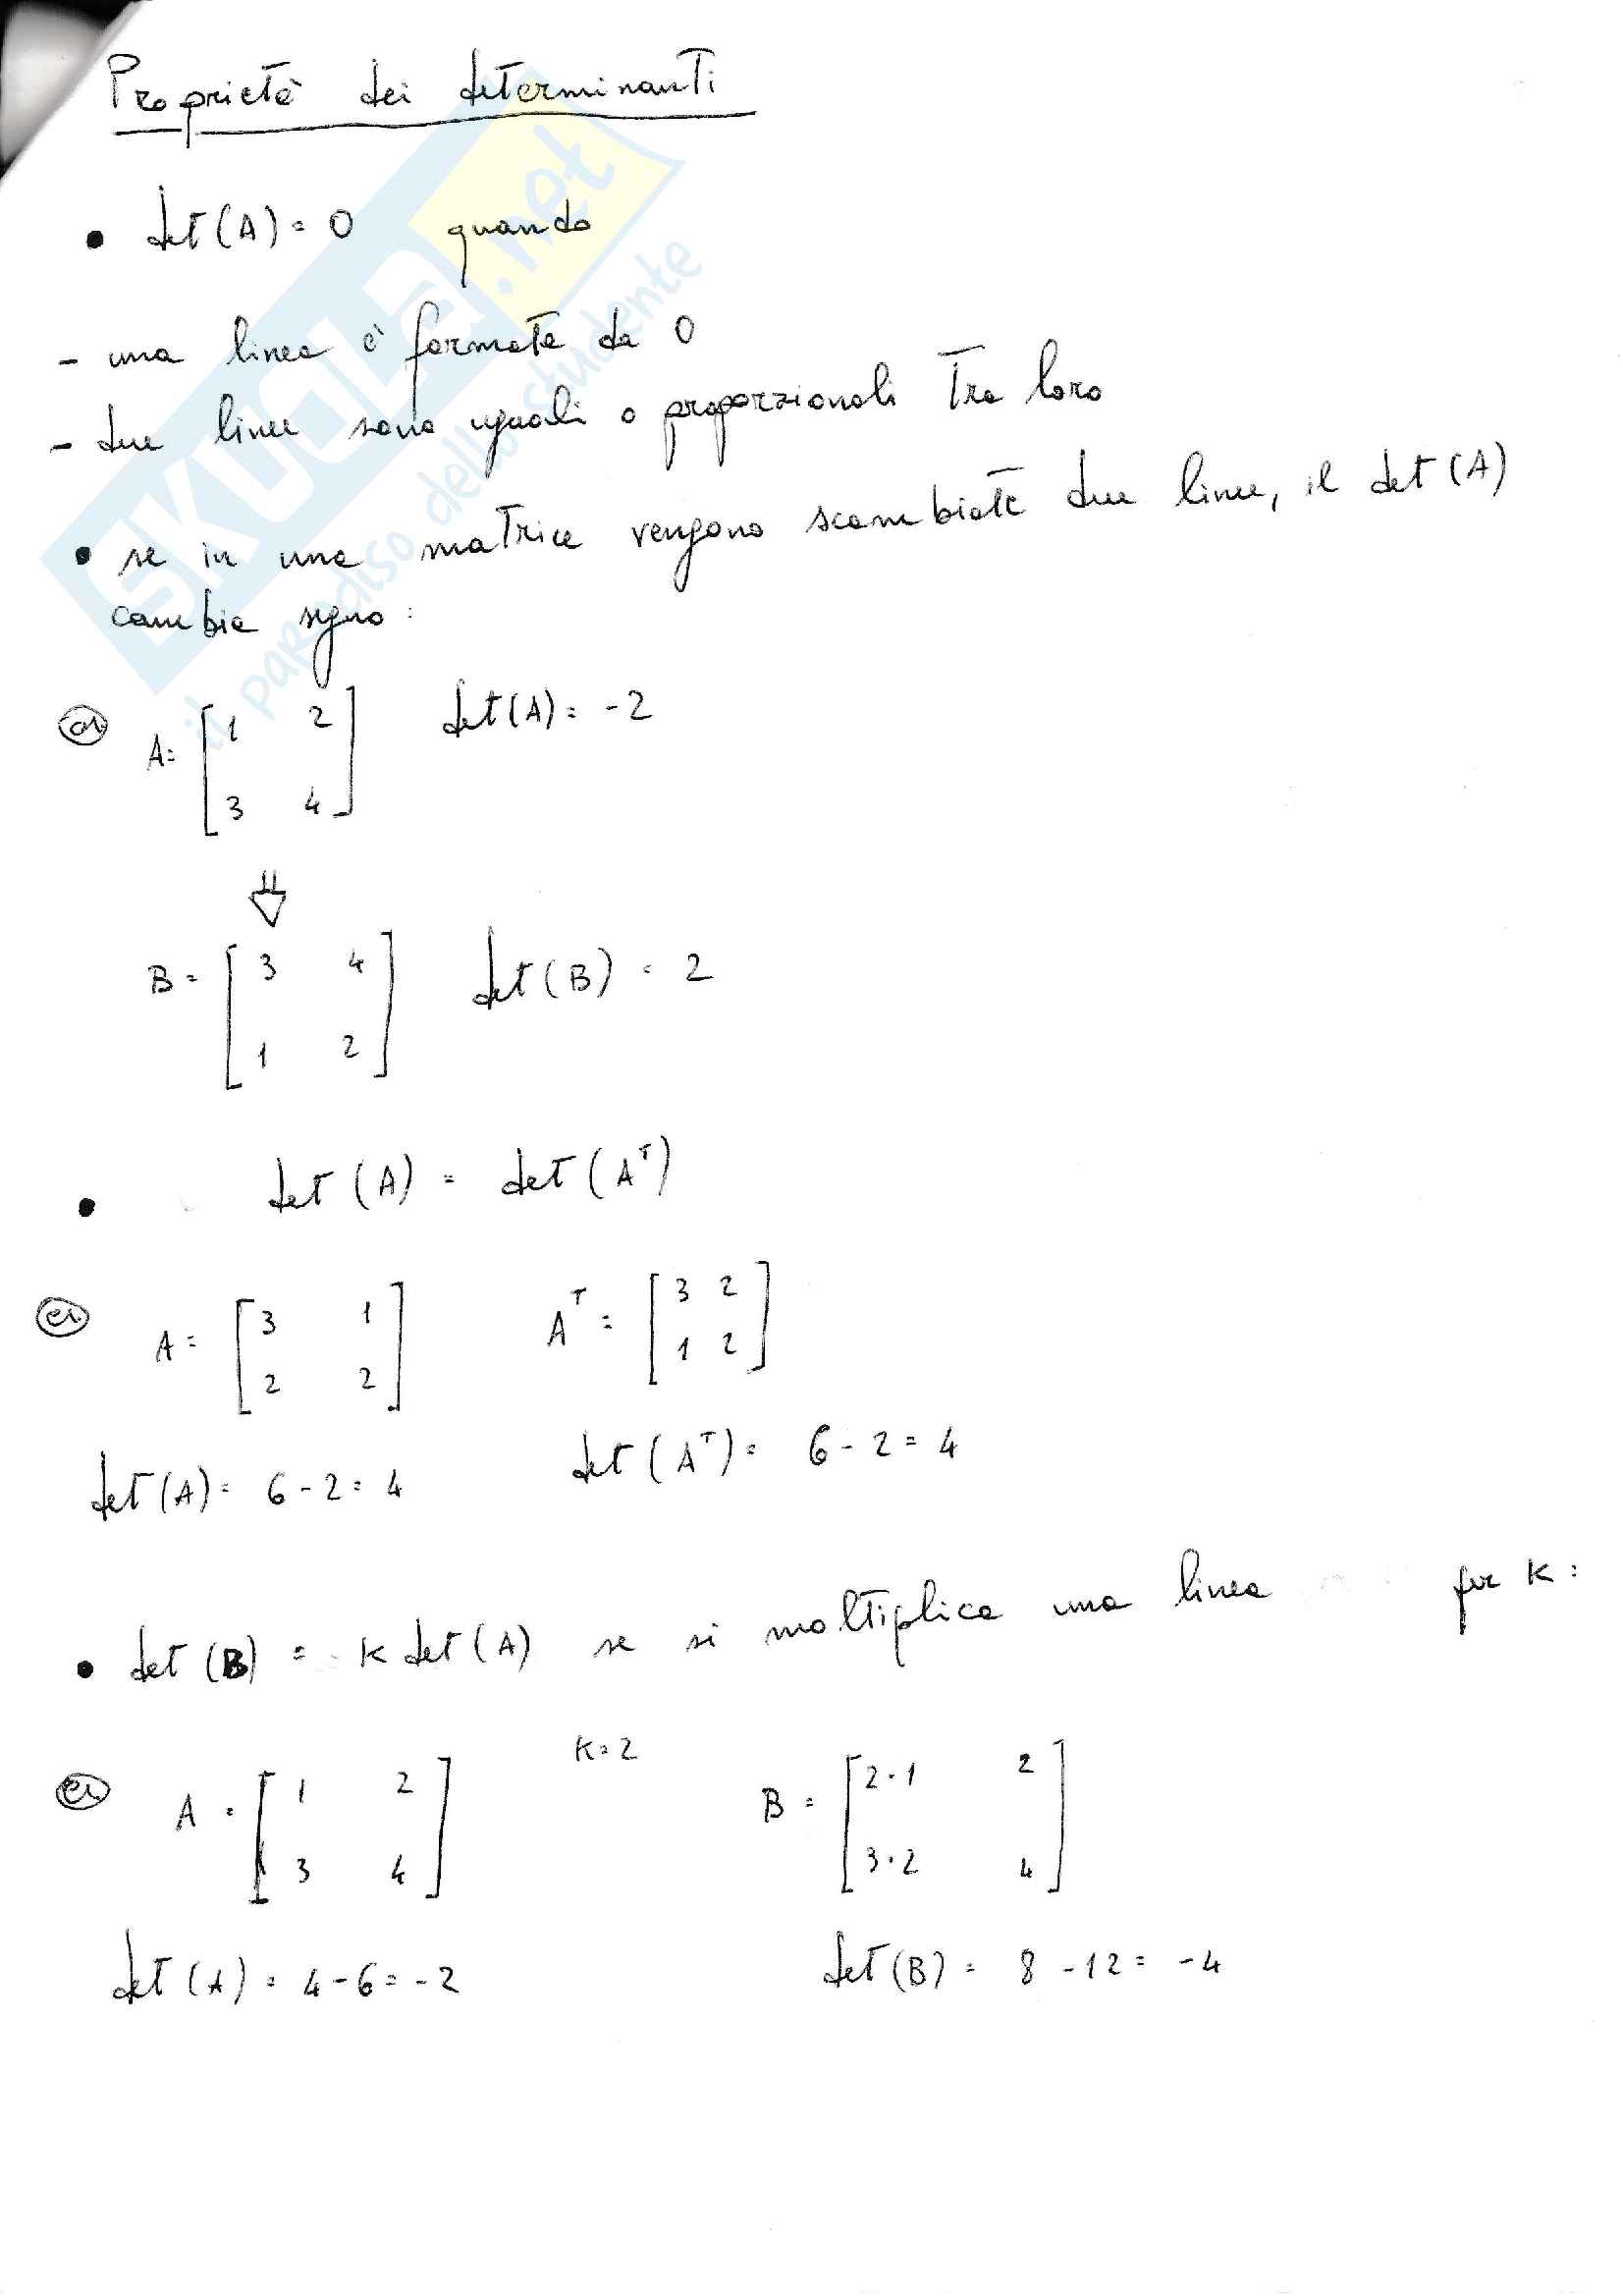 Proprietà dei determinanti
• det(A) = 0 quando
- una linea è formata da 0
- due linee sono uguali o proporzionali tra loro
• se in una matrice vengono scambiate due linee, il det(A)
cambia segno:
es A = [1 2
3 4] det(A) = -2
⇓
B = [3 4
1 2] det(B) = 2
• det(A) = det(Aᵀ)
es A = [3 1
2 2] Aᵀ = [3 2
1 2]
det(A) = 6 - 2 = 4 det(Aᵀ) = 6 - 2 = 4
• det(B) = K det(A) se si moltiplica una linea per K:
es A = [1 2
3 4] K = 2 B = [2·1 2
3·2 4]
det(A) = 4 - 6 = -2 det(B) = 8 - 12 = -4
SKUOLA.net
il paradiso dello studente